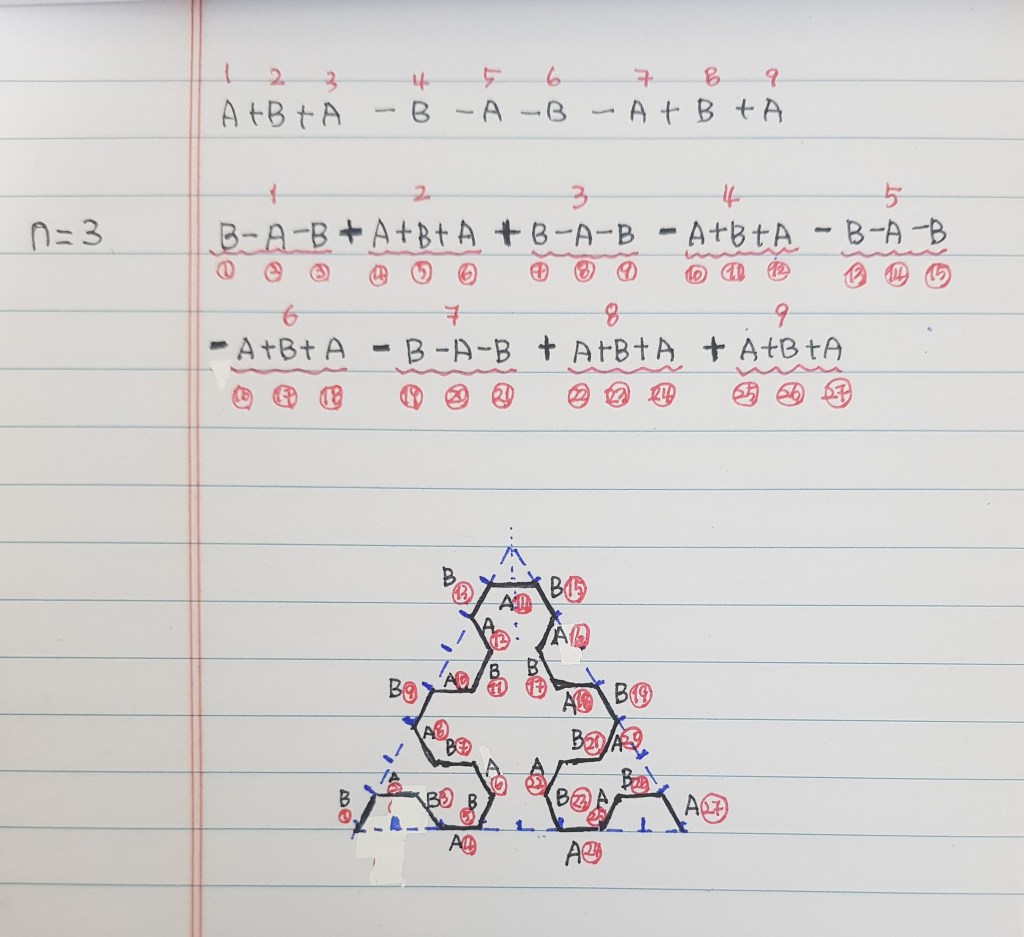 1 2 3 4 5 6 7 8 9
A+B+A -B -A -B -A+B+A
1 2 3 4 5
n=3 B-A-B+A+B+A+B-A-B-A+B+A-B-A-B
① ② ③ ④ ⑤ ⑥ ⑦ ⑧ ⑨ ⑩ ⑪ ⑫ ⑬ ⑭ ⑮
6 7 8 9
-A+B+A -B-A-B + A+B+A + A+B+A
⑯ ⑰ ⑱ ⑲ ⑳ ㉑ ㉒ ㉓ ㉔ ㉕ ㉖ ㉗
B ⑬ B ⑮
A ⑭
A ⑫ A ⑯
B ⑪ B ⑰
B ⑨ A ⑩ A ⑱ B ⑲
A ⑧ B ㉑ A ⑳
B ⑦
A ⑥ A ㉒
A ② B ㉖
B ① B ③ B ⑤ B ㉓ A ㉕ A ㉗
A ④ A ㉔